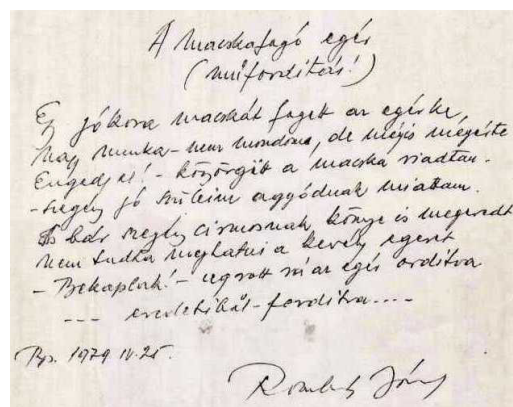 A macskafogó egér
(műfordítás!)
Egy jókora macskát fogott az egérke,
nagy munka - nem mondom, de mégis megérte
Engedj el! - könyörgött a macska riadtan -
- szegény jó szüleim aggódnak miattam.
És bár szegény cirmosnak könnye is megeredt
nem tudta meghatni a kevély egeret
- Bekaplak! - ugrott rá az egér ordítva
--- eredetiből - fordítva ....
Bp. 1979 IV. 25.
Romhányi József